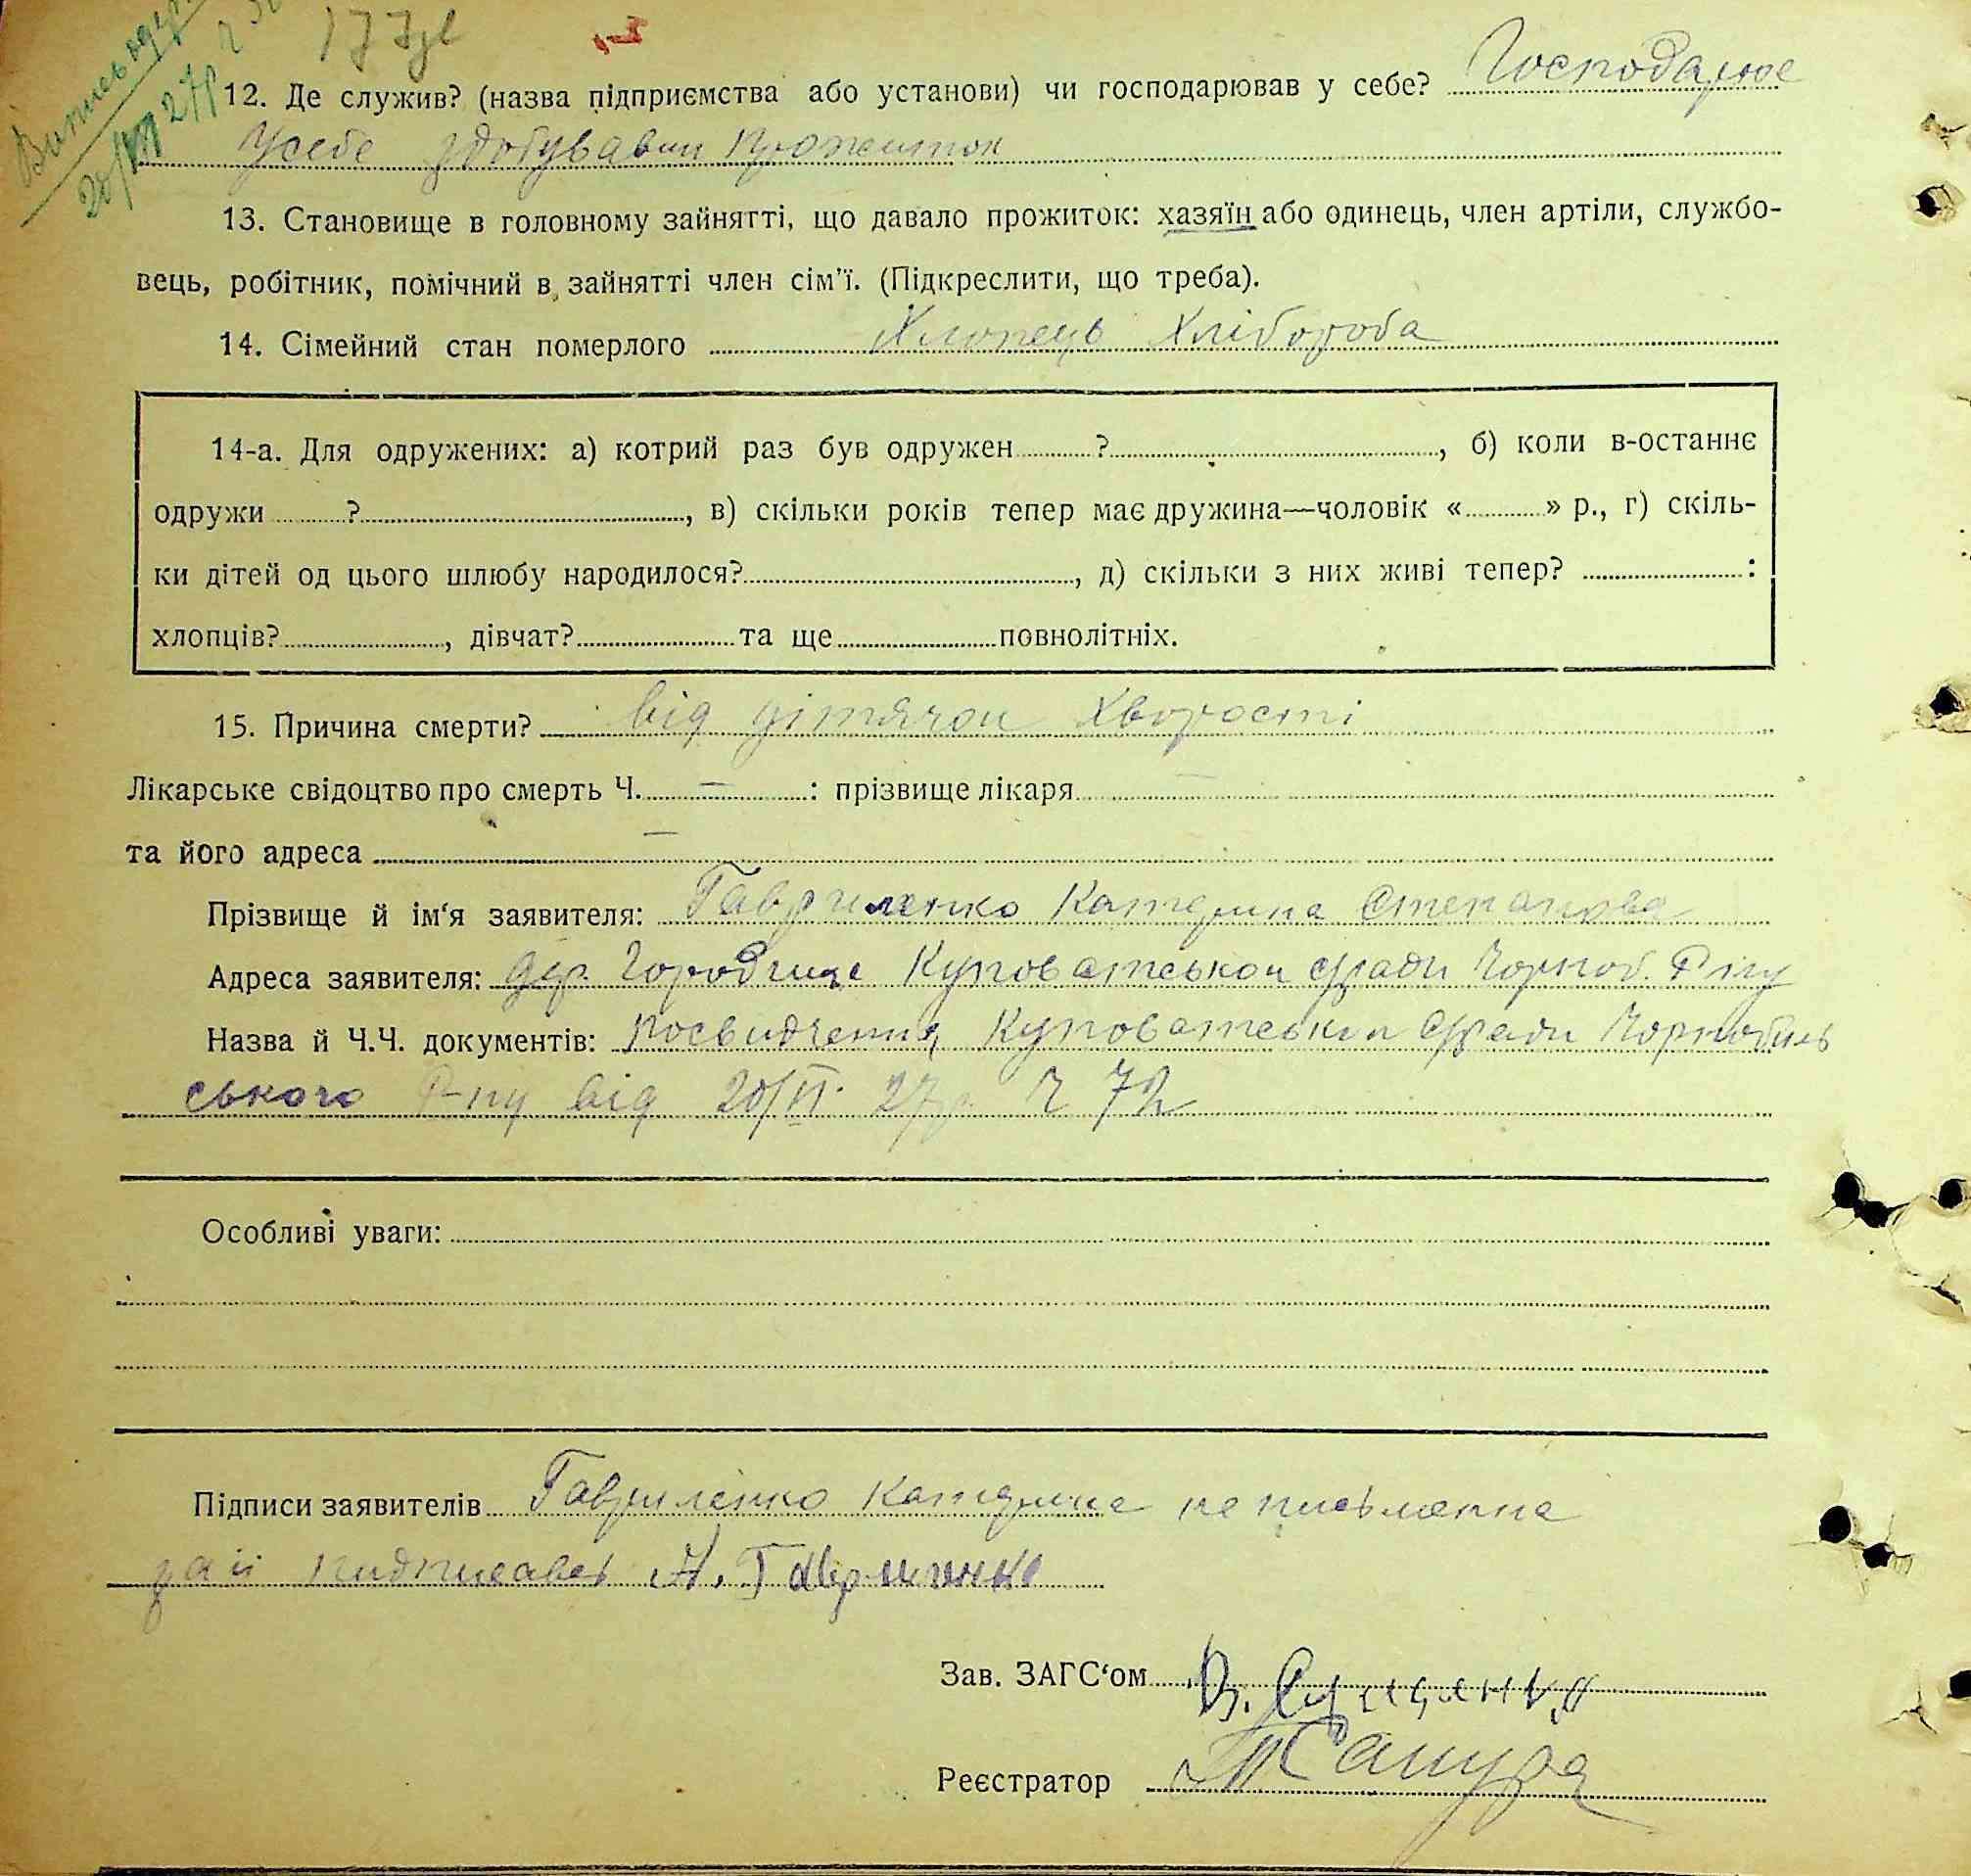 Випись
177
12. Де служив? (назва підприємства або установи) чи господарював у себе? Господарює
У себе здобувавши Прожиток
13. Становище в головному зайнятті, що давало прожиток: хазяїн або одинець, член артіли, службо-
вець, робітник, помічний в зайнятті член сім'ї. (Підкреслити, що треба).
14. Сімейний стан померлого Хлопець Хлібороба
14-а. Для одружених: а) котрий раз був одружен ? , б) коли в-останнє
одружи ? , в) скільки років тепер має дружина—чоловік « » р., г) скіль-
ки дітей од цього шлюбу народилося? , д) скільки з них живі тепер? :
хлопців? , дівчат? та ще повнолітніх.
15. Причина смерти? від дітячои Хворости
Лікарське свідоцтво про смерть Ч. — : прізвище лікаря —
та його адреса —
Прізвище й ім‘я заявителя: Гавриленко Катерина Степанова
Адреса заявителя: дер. Городище Куповатськои с/ради Чорноб. Р-ну
Назва й Ч.Ч. документів: Посвидчення Куповатськои с/ради Чорнобиль
ського Р-ну від 20/VI 27р. Ч 72
Особливі уваги:
Підписи заявителів Гавриленко Катерина неписьменна
за ii пидписавсь А. Гавриленко
Зав. ЗАГС‘ом
Реєстратор